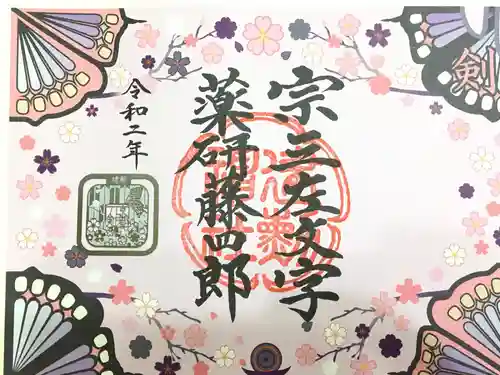 宗三左文字
薬研藤四郎
令和二年
剣